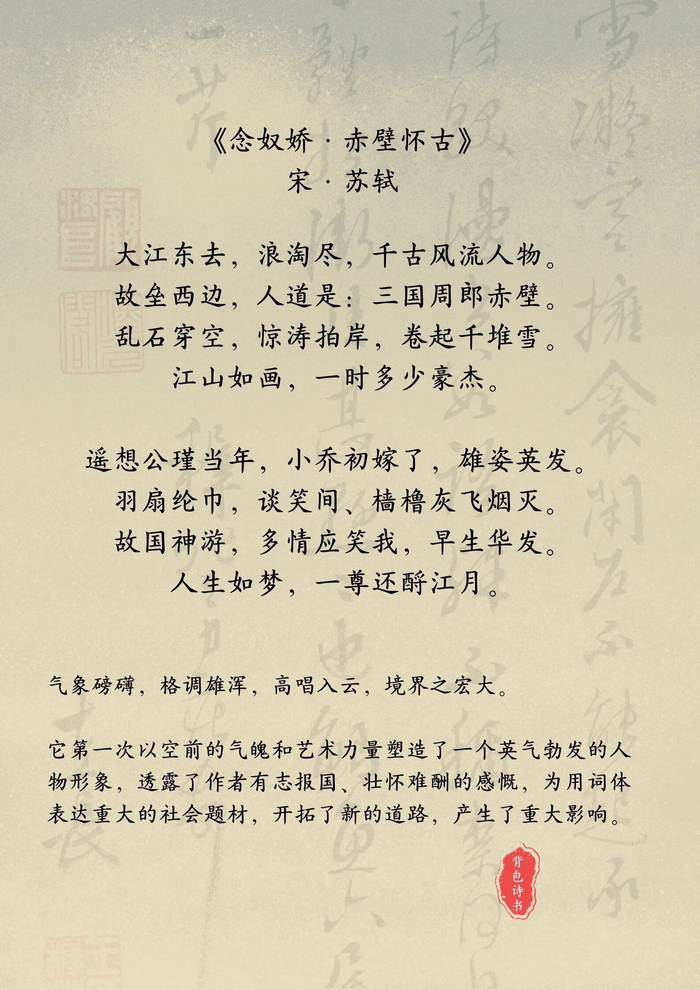 《念奴娇·赤壁怀古》
宋·苏轼
大江东去，浪淘尽，千古风流人物。
故垒西边，人道是：三国周郎赤壁。
乱石穿空，惊涛拍岸，卷起千堆雪。
江山如画，一时多少豪杰。
遥想公瑾当年，小乔初嫁了，雄姿英发。
羽扇纶巾，谈笑间、樯橹灰飞烟灭。
故国神游，多情应笑我，早生华发。
人生如梦，一尊还酹江月。
气象磅礴，格调雄浑，高唱入云，境界之宏大。
它第一次以空前的气魄和艺术力量塑造了一个英气勃发的人
物形象，透露了作者有志报国、壮怀难酬的感慨，为用词体
表达重大的社会题材，开拓了新的道路，产生了重大影响。
背包诗书